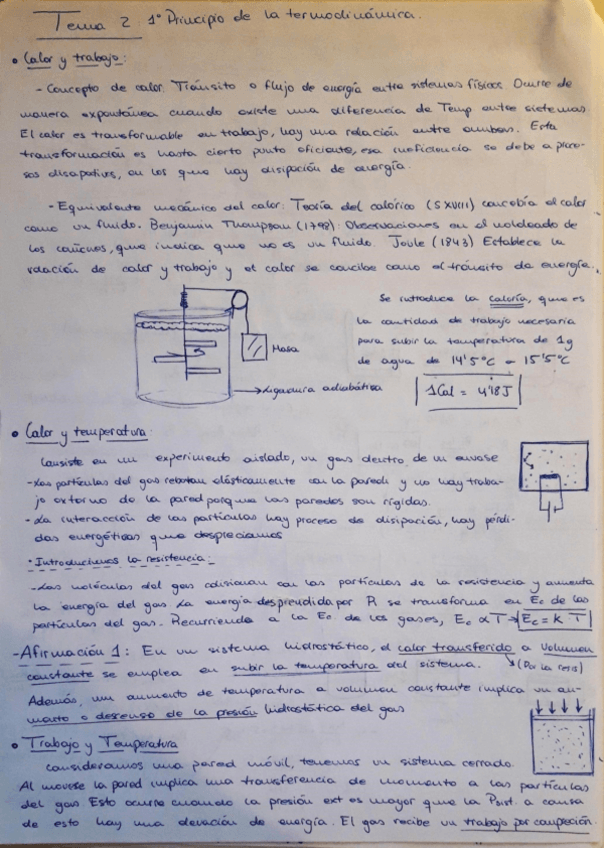 Tema 2 1º Principio de la termodinámica.
• Calor y trabajo:
- Concepto de calor: Tránsito o flujo de energía entre sistemas físicos. Ocurre de
manera expontánea cuando existe una diferencia de Temp entre sistemas.
El calor es transformable en trabajo, hay una relación entre ambos. Esta
transformación es hasta cierto punto eficiente, esa ineficiencia se debe a proce-
sos disipativos, en los que hay disipación de energía.
- Equivalente mecánico del calor: Teoría del calórico (S XVIII) concebía el calor
como un fluido. Benjamin Thompson (1798): Observaciones en el moldeado de
los cañones, que indica que no es un fluido. Joule (1843) Establece la
relación de calor y trabajo y el calor se concibe como el tránsito de energía.
Se introduce la caloría, que es
la cantidad de trabajo necesaria
para subir la temperatura de 1g
de agua de 14'5ºC - 15'5ºC
1Cal = 4'18J
Masa
Ligadura adiabática
• Calor y temperatura:
Consiste en un experimento aislado, un gas dentro de un envase
- Las partículas del gas rebotan elásticamente con la pared y no hay traba-
jo externo de la pared porque las paredes son rígidas.
- La interacción de las partículas hay proceso de disipación, hay pérdi-
das energéticas que despreciamos
• Introducimos la resistencia:
- Las moléculas del gas colisionan con las partículas de la resistencia y aumenta
la energía del gas La energía desprendida por R se transforma en Ec de las
partículas del gas. Recurriendo a la Ec de los gases, Ec α T → Ec = K T
- Afirmación 1: En un sistema hidrostático, el calor transferido a volumen
constante se emplea en subir la temperatura del sistema. (Por la resis)
Además, un aumento de temperatura a volumen constante implica un au-
mento o descenso de la presión hidrostática del gas
• Trabajo y Temperatura
Consideramos una pared móvil, tenemos un sistema cerrado.
Al moverse la pared implica una transferencia de momento a las partículas
del gas Esto ocurre cuando la presión ext es mayor que la Pint. a causa
de esto hay una elevación de energía. El gas recibe un trabajo por compresión.